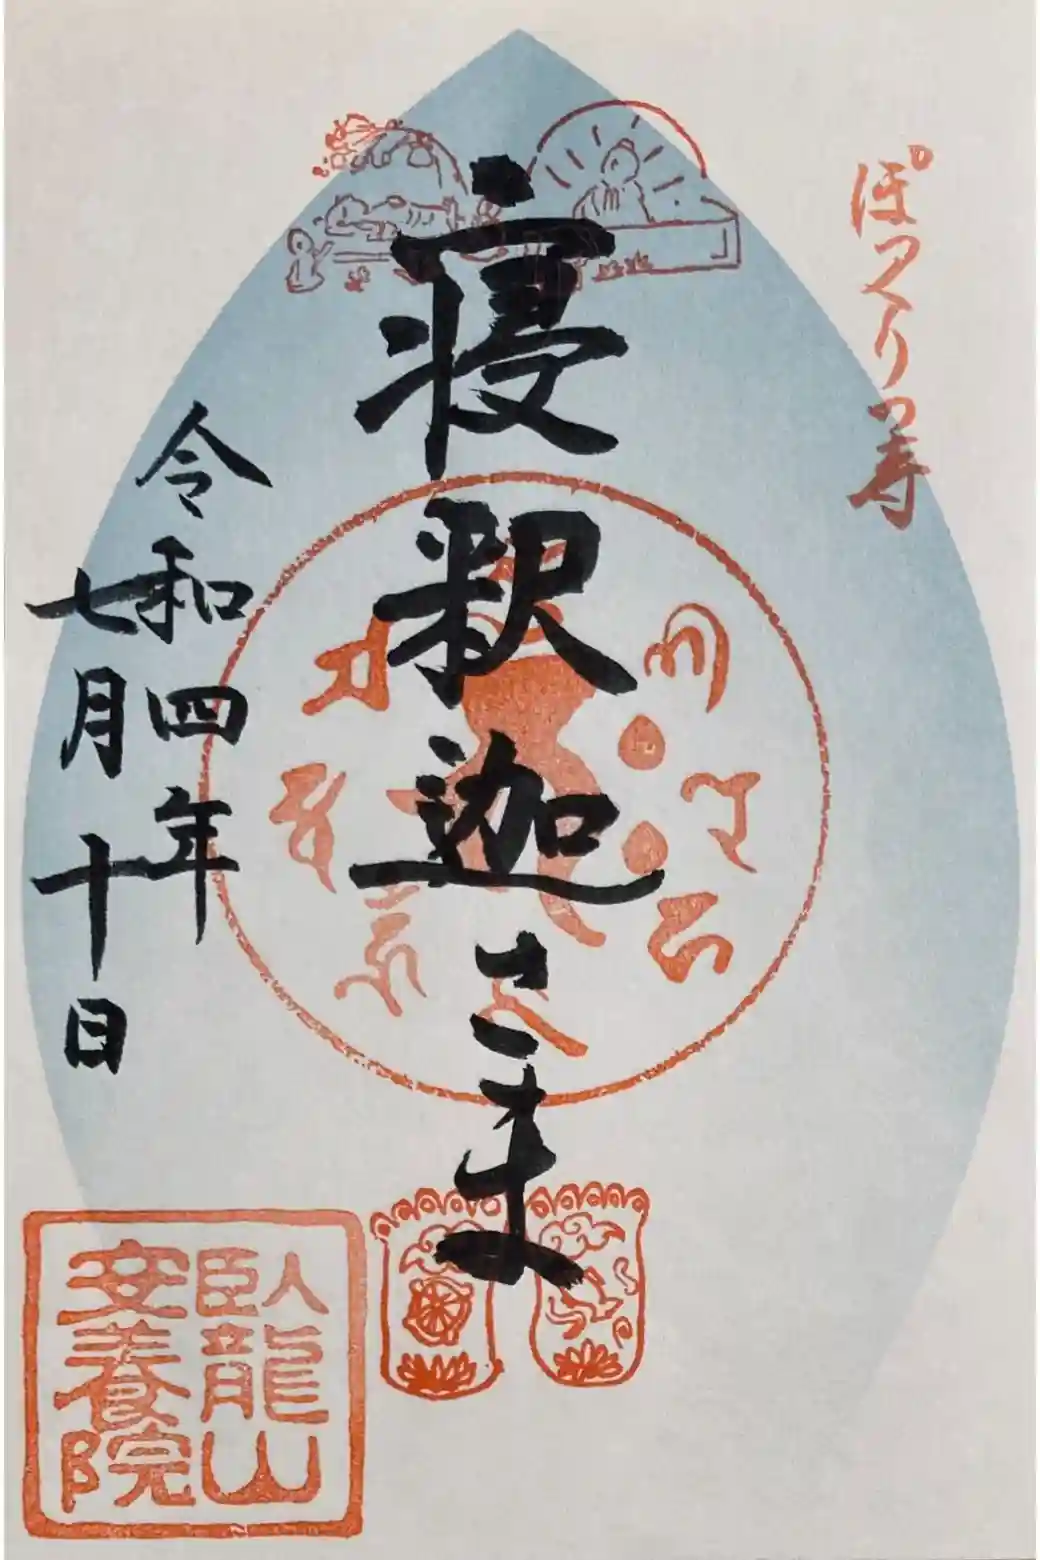 ぽっくり寿
寝釈迦さま
令和四年
七月十日
臥龍山
安養院